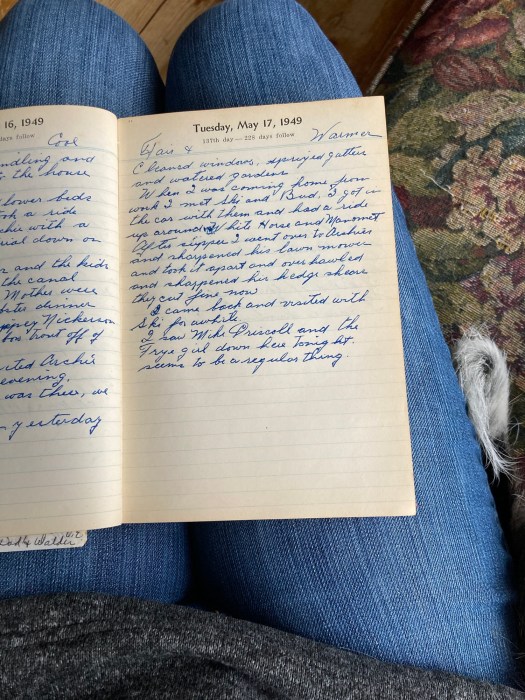 16, 1949
days follow
Cool
ndling and
the house
lower beds
ook a ride
with a
down on
r and the kids
the canal
Mother were
dinner
Nickerson
trout off of
ited Archie
evening.
was there, we
yesterday
Walder
Tuesday, May 17, 1949
137th day — 228 days follow
Fair & Warmer
Cleaned windows, sprayed gutters
and watered gardens.
When I was coming home from
work I met Ski and Bud, I got in
the car with them and had a ride
up around White Horse and Manomet
After supper I went over to Archies
and sharpened his lawn mower
and took it apart and overhawled
and sharpened his hedge shears
they cut fine now.
I came back and visited with
Ski for awhile.
I saw Mike Driscoll and the
Frye girl down here tonight.
seems to be a regular thing.